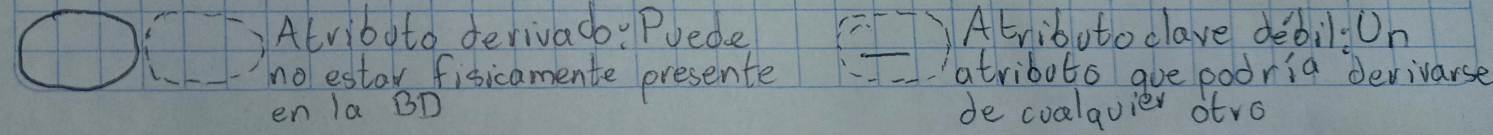 Atributo derivado: Puede
no estar fisicamente presente
en la BD
Atributo clave débil: Un
atributo que podría derivarse
de cualquier otro